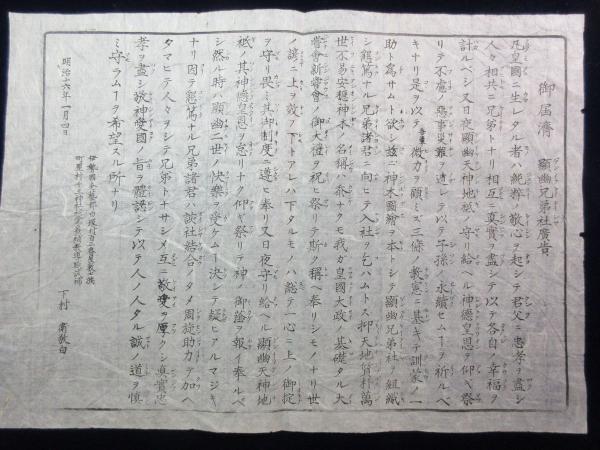 御届濟 顯幽兄弟社廣告
凡皇國ニ生レタル者ハ純粋ノ敬心ヲ起シテ君父ニ忠孝ヲ盡シ
人々相共ニ兄弟トナリ相互ニ真實ヲ盡シテ以テ各自ノ幸福ヲ
計ルベシ又日夜顯幽天神地祇ノ守リ給ヘル神德皇恩ヲ仰ギ祭
リテ不慮ノ惡事災難ヲ遁レテ以テ子孫ノ永續セムーヲ祈ルベ
キナリ是ヲ以テ吾東微力ヲ顧ミズ三條ノ教憲ニ基キテ訓蒙ノ一
助ト爲サムト欲シ茲ニ神木圖縮ヲ本トシテ顯幽兄弟社ヲ組織
シ懇篤ナル兄弟諸君ニ向ヒテ入社ヲ乞ハムトス抑天地諸朴萬
世不易安穩神木ノ名稱ハ忝ナクモ我ガ皇國大政ノ基礎タル大
嘗會新嘗會ノ御大禮ヲ祝ヒ祭リテ斯ク稱ヘ奉リシモノナリ世
ノ諺ニ上ノ敎ヘ下トアレハ下タルモノハ総テ一心ニ上ノ御掟
ヲ守リ畏ミ其御制度ニ遵ヒ奉リ又日夜守リ給ヘル顯幽天神地
祇ノ其神德皇恩ヲ怠リナク仰ギ祭リテ神ノ御蔭ヲ報イ奉ルベ
シ然ル時ハ顯幽二世ノ快樂ヲ受ケムー決シテ疑ヒアルマジキ
ナリ因テ懇篤ナル兄弟諸君ハ該社結合ノタメ周旋助力ヲ加ヘ
タマヒテ人々ヲシテ兄弟トナサシメ互ニ敬愛ヲ厚クシ真實忠
孝ヲ盡シ敬神愛國ノ旨ヲ體認シテ以テ人ノ人タル誠ノ道ヲ慎
ミ守ラムーヲ希望スル所ナリ
明治十六年一月四日
下村 敬白